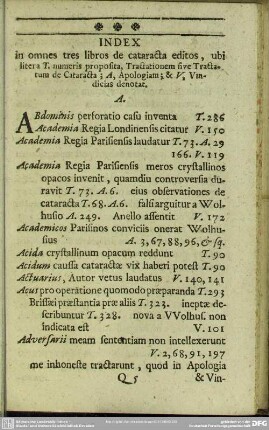 INDEX
in omnes tres libros de cataracta editos, ubi
litera T. numeris proposita, Tractationem sive Tracta-
tum de Cataracta; A, Apologiam; & V. Vin-
dicias denotat.
A.
ABdominis perforatio casu inventa T. 286
Academia Regia Londinensis citatur V. 150
Academia Regia Parisiensis laudatur T. 73. A. 29
166. V. 119
Academia Regia Parisiensis meros crystallinos
opacos invenit, quamdiu controversia du-
ravit T. 73. A. 6. eius observationes de
cataracta T. 68. A. 6. falsi arguitur a Wol-
husio A. 249. Anello assentit V. 172
Academicos Parisinos conviciis onerat Wolhu-
sius A. 3, 67, 88, 96, & sq.
Acida crystallinum opacum reddunt T. 90
Acidum caussa cataractæ vix haberi potest T. 90
Actuarius, Autor vetus laudatus V. 140, 141
Acus pro operatione quomodo præparanda T. 293
Brissæi præstantia præ aliis T. 323. ineptæ de-
scribuntur T. 328. nova a VVolhus. non
indicata est V. 101
Adversarii meam sententiam non intellexerunt
V. 2, 68, 91, 197
me inhoneste tractarunt, quod in Apologia
Q 5 & Vin-